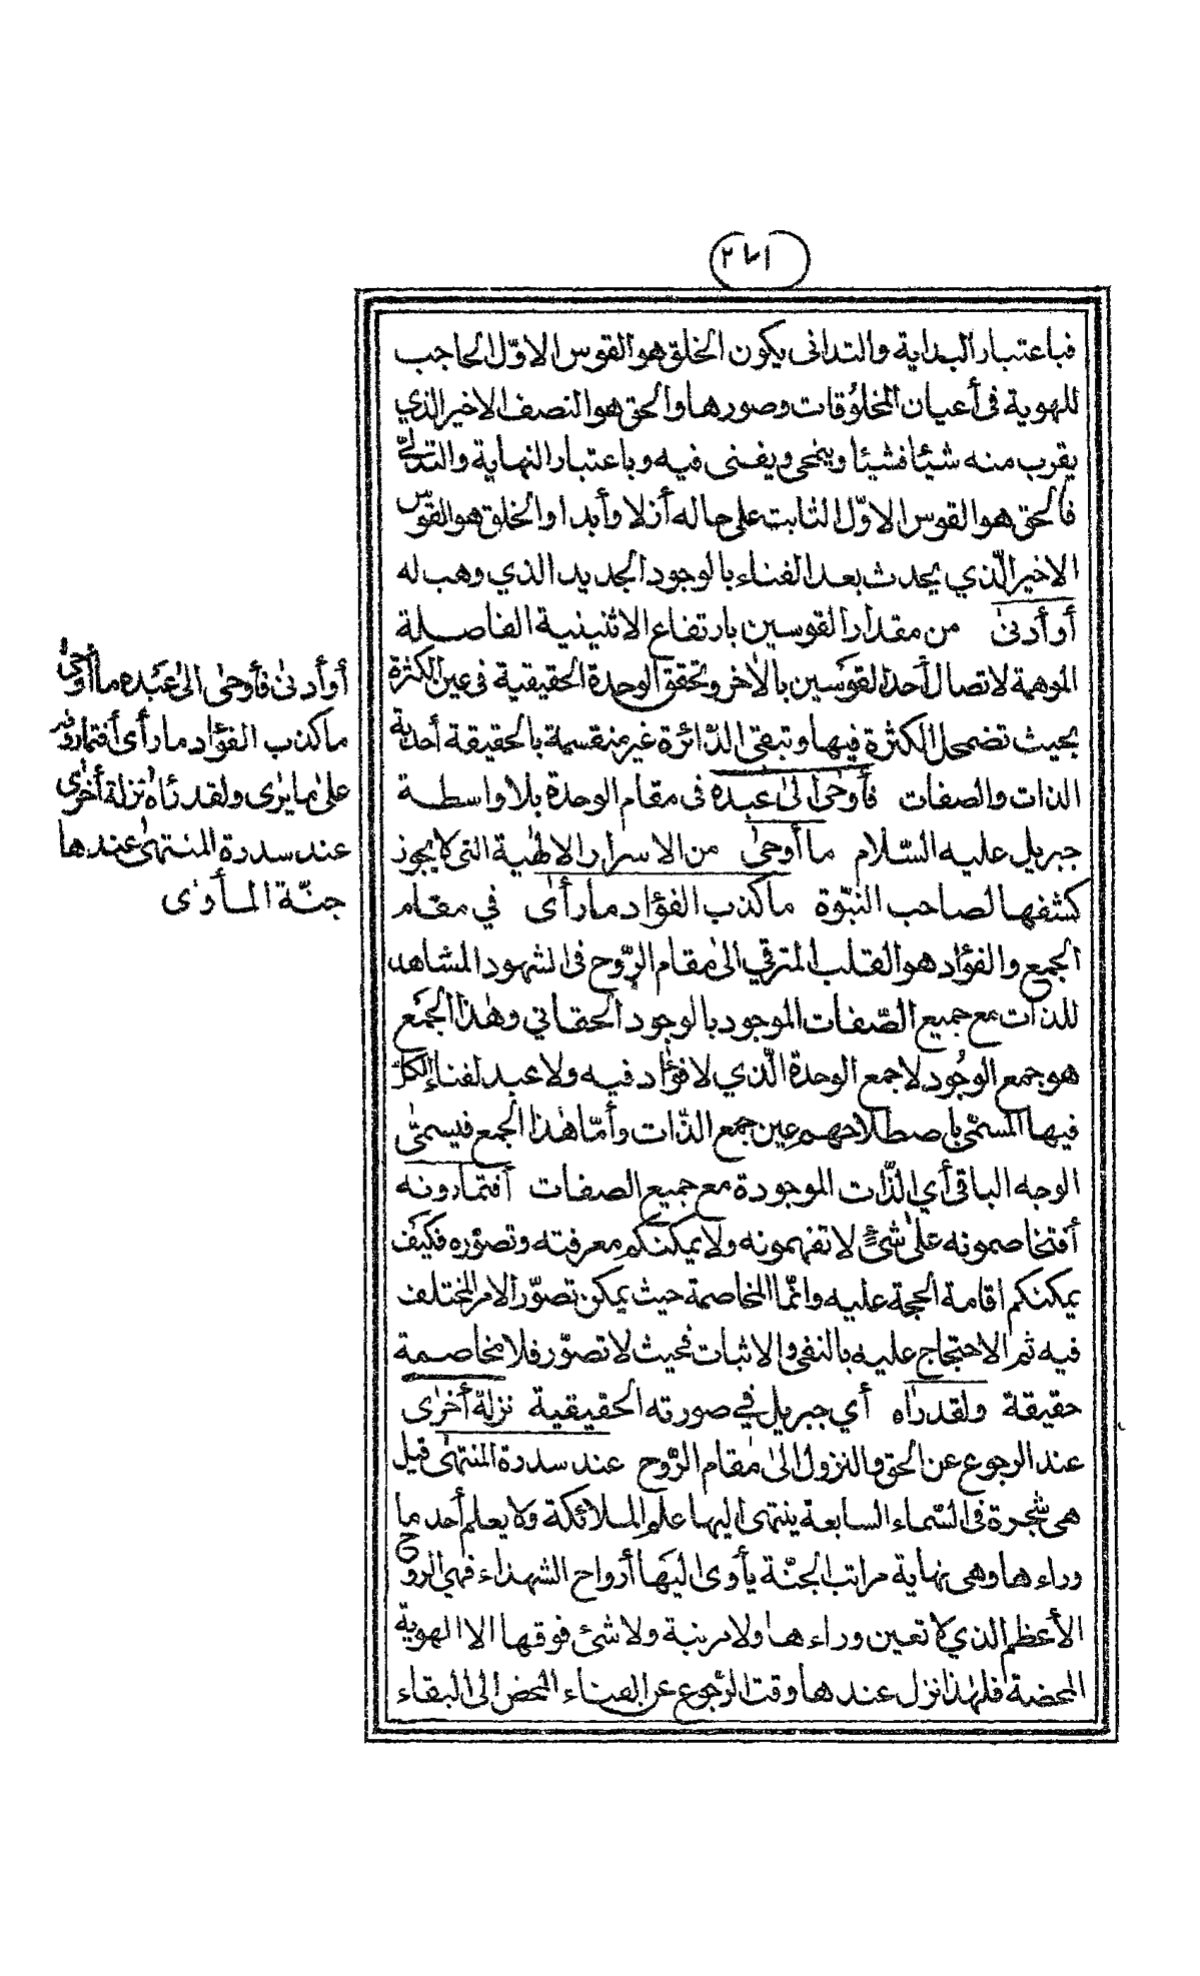 فباعتبار البداية والتدانى يكون الخلق هو القوس الاوّل الحاجب
للهوية فى أعيان المخلوقات وصورها والحق هو النصف الاخير الذي
يقرب منه شيئا فشيئا وينمحى ويفنى فيه وباعتبار النهاية والتدلّى
فالحق هو القوس الاوّل الثابت على حاله أزلا وأبدا والخلق هو القوس
الاخير الّذي يحدث بعد الفناء بالوجود الجديد الذي وهب له
أو أدنىٰ من مقدار القوسين بارتفاع الاثنينية الفاصلة
الموهمة لاتصال أحد القوسين بالآخر وتحقق الوحدة الحقيقية فى عين الكثرة
بحيث تضمحل الكثرة فيها وتبقى الدّائرة غير منقسمة بالحقيقة أحدية
الذات والصفات فأوحىٰ الىٰ عبده فى مقام الوحدة بلا واسطة
جبريل عليه السّلام ما أوحىٰ من الاسرار الالٰهية التى لا يجوز
كشفها لصاحب النبّوة ماكذب الفؤاد مارأىٰ في مقام
الجمع والفؤاد هو القلب المترقي الىٰ مقام الرّوح فى الشهود المشاهد
للذات مع جميع الصّفات الموجود بالوجود الحقاني وهٰذا الجمَع
هو جمع الوجُود لاجمع الوحدة الّذي لا فؤاد فيه ولا عبد لفناء الكل
فيها المسمّى باصطلاحهم عين جمع الذّات وأمّا هٰذا الجمع فيسمىّٰ
الوجه الباقى أي الذّات الموجودة مع جميع الصفات أفتمارونه
أفتخاصمونه علىٰ شئٍ لا تفهمونه ولا يمكنكم معرفته وتصوّره فكيَف
يمكنكم اقامة الحجة عليه وانّما المخاصمة حيث يمكن تصوّر الامر المختلف
فيه ثم الاحتجاج عليه بالنفى والاثبات فحيث لا تصوّر فلا مخاصمة
حقيقة ولقد رأٰه أي جبريل في صورته الحقيقية نزلة أخرىٰ
عند الرجوع عن الحق والنزول الىٰ مقام الرّوح عند سدرة المنتهىٰ قيل
هى شجرة فى السّماء السابعة ينتهى اليها علم الملائكة ولا يعلم أحد ما
وراءها وهى نهاية مراتب الجنّة يأوى اليَها أرواح الشهداء فهي الروح
الأعظم الذي لا تعين وراءها ولا مرتبة ولا شئ فوقها الا الهوية
المحضة فلهٰذا نزل عندها وقت الرّجوع عن الفناء المحض الى البقاء
أو أدنىٰ فأوحىٰ الىٰ عَبده ما أوحىٰ
ماكذب الفؤاد مارأىٰ أفتمارونه
علىٰ مايرىٰ ولقد رأٰه نزلة أخرىٰ
عند سدرة المنتهىٰ عندها
جنّة المأوٰى